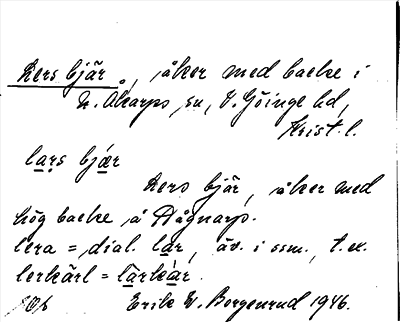 Lers bjär, åker med backe i
N. Åkarps sn, V. Göinge hd,
Krist. l.
lạrs bjær
Lers bjär, åker med
hög backe å Hågnarp.
lera = dial. lar, äv. i ssm., t.ex.
lerkärl = lārkàr.
Erik W. Borgenrud 1946.